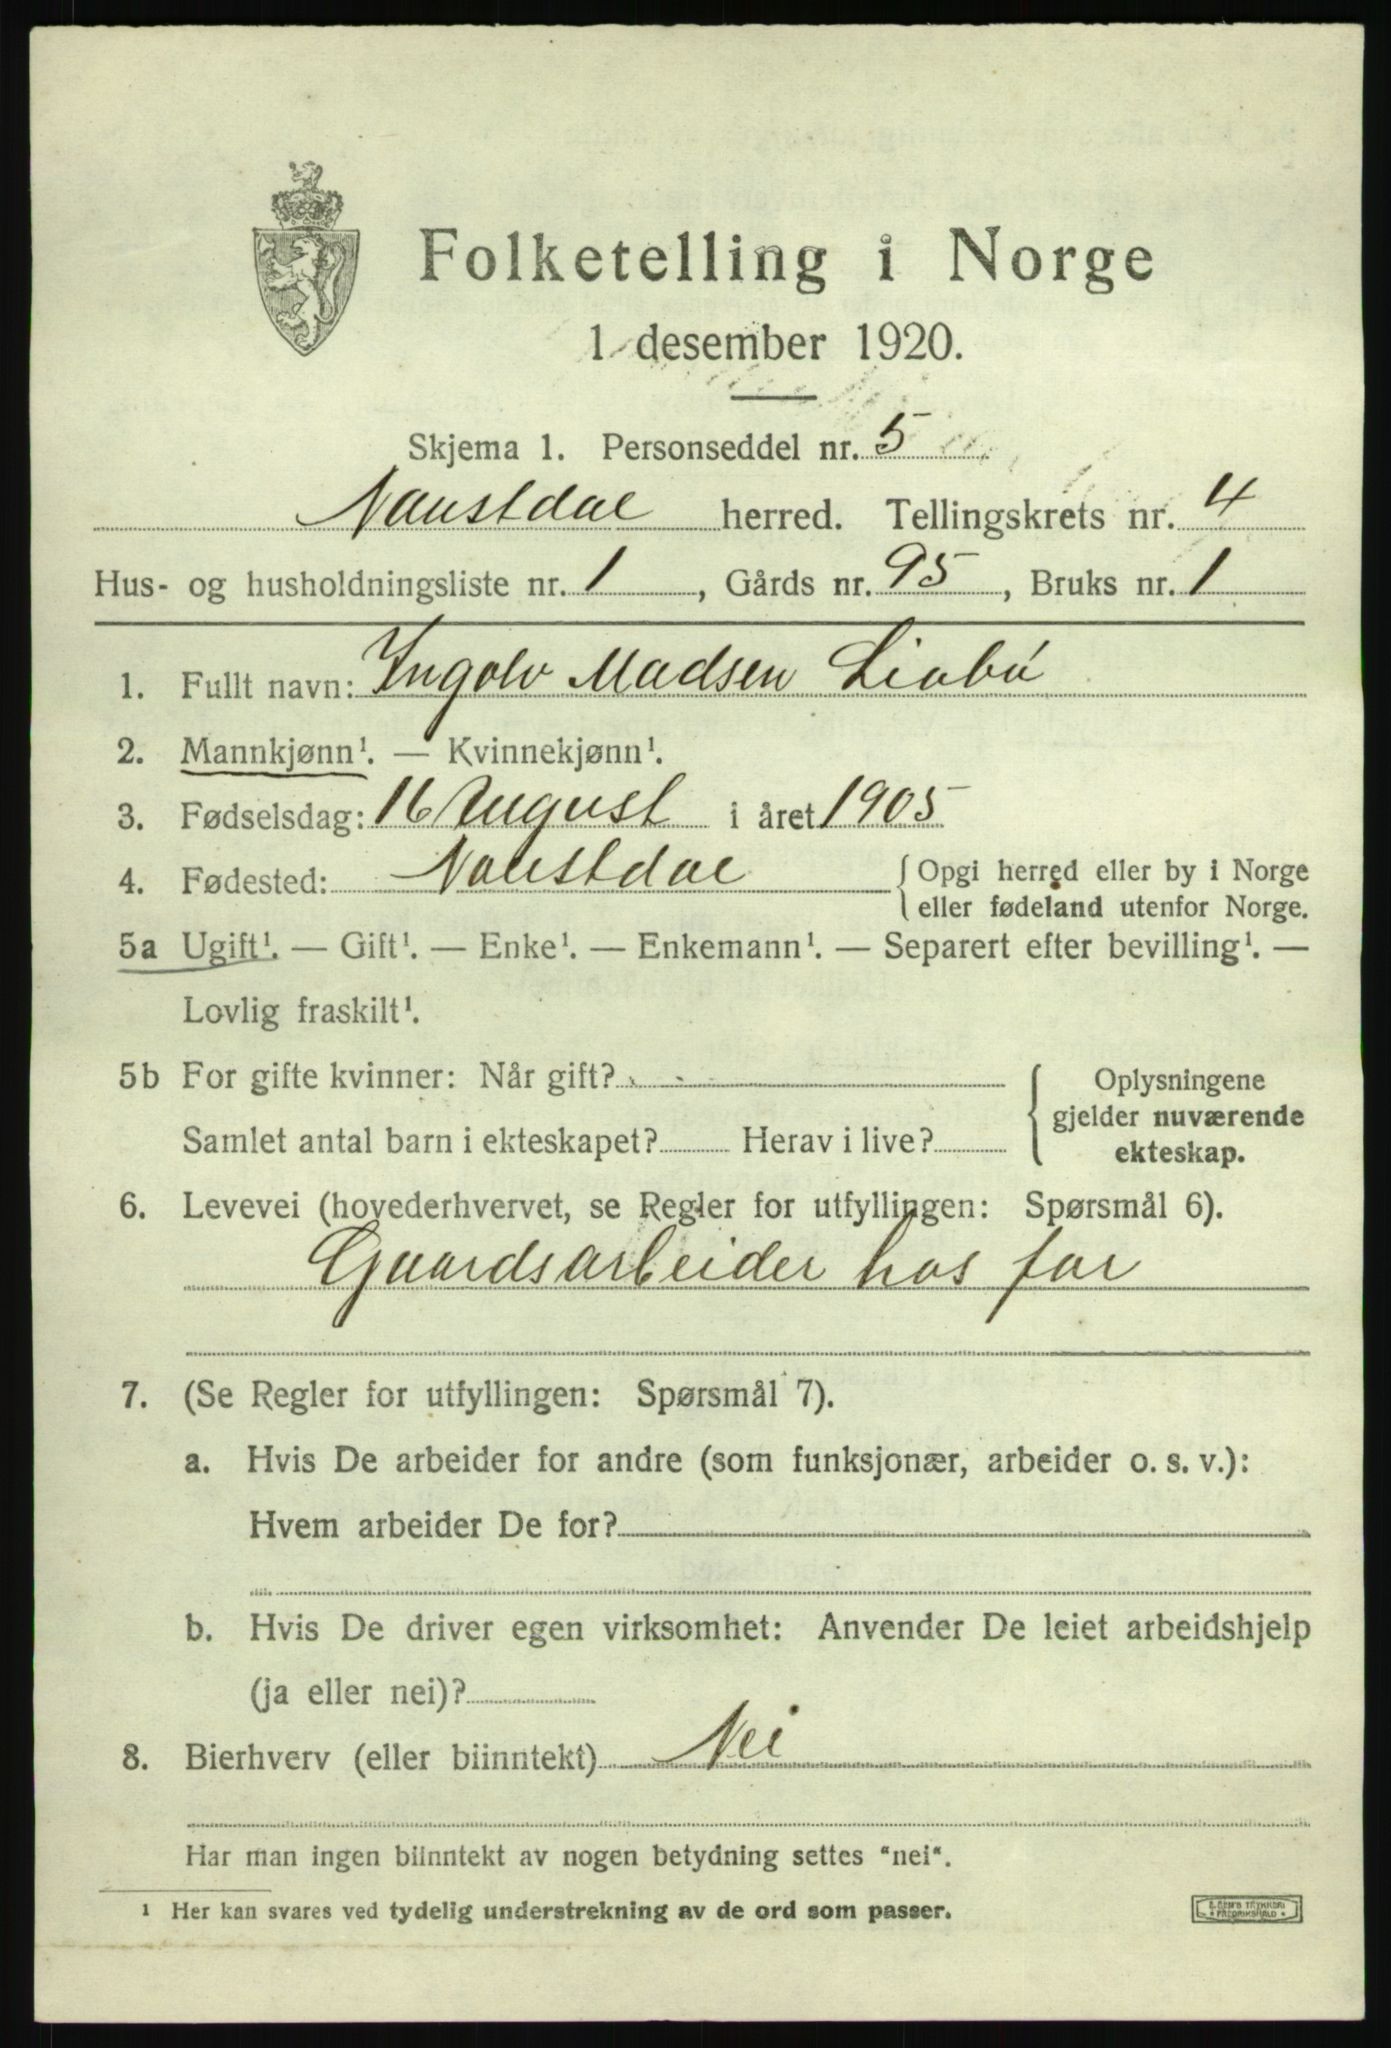 Folketelling i Norge
1 desember 1920.
Skjema 1. Personseddel nr. 5
Naustdal herred. Tellingskrets nr. 4
Hus- og husholdningsliste nr. 1, Gårds nr. 95, Bruks nr. 1
1. Fullt navn: Ingolv Madsen Liabó
2. Mannkjønn¹. — Kvinnekjønn¹.
3. Fødselsdag: 16 August i året 1905
4. Fødested: Naustdal { Opgi herred eller by i Norge
eller fødeland utenfor Norge.
5a Ugift¹. — Gift¹. — Enke¹. — Enkemann¹. — Separert efter bevilling¹. —
Lovlig fraskilt¹.
5b For gifte kvinner: Når gift? { Oplysningene
gjelder nuværende
Samlet antal barn i ekteskapet? Herav i live? ekteskap.
6. Levevei (hovederhvervet, se Regler for utfyllingen: Spørsmål 6).
Gaardsarbeider hos far
7. (Se Regler for utfyllingen: Spørsmål 7).
a. Hvis De arbeider for andre (som funksjonær, arbeider o. s. v.):
Hvem arbeider De for?
b. Hvis De driver egen virksomhet: Anvender De leiet arbeidshjelp
(ja eller nei)?
8. Bierhverv (eller biinntekt) Nei
Har man ingen biinntekt av nogen betydning settes "nei".
¹ Her kan svares ved tydelig understrekning av de ord som passer.